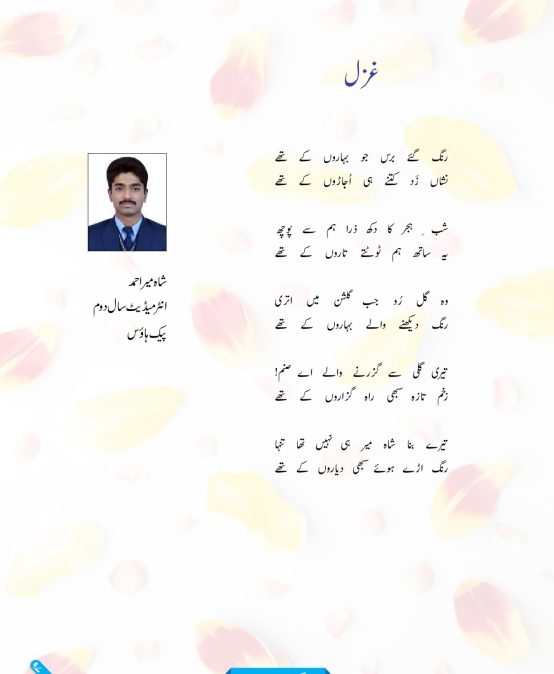 غزل
رنگ گئے برس جو بہاروں کے تھے
نشاں زَد کتنے ہی اُجاڑوں کے تھے
شب ِ ہجر کا دکھ ذرا ہم سے پوچھ
یہ ساتھ ہم ٹوٹتے تاروں کے تھے
وہ گل رُو جب گلشن میں اتری
رنگ دیکھنے والے بہاروں کے تھے
تیری گلی سے گزرنے والے اے صنم!
زخم تازہ سبھی راہ گزاروں کے تھے
تیرے بنا شاہ میر ہی نہیں تھا تنہا
رنگ اڑے ہوئے سبھی دیاروں کے تھے
شاہ میر احمد
انٹرمیڈیٹ سال دوم
پیک ہاؤس